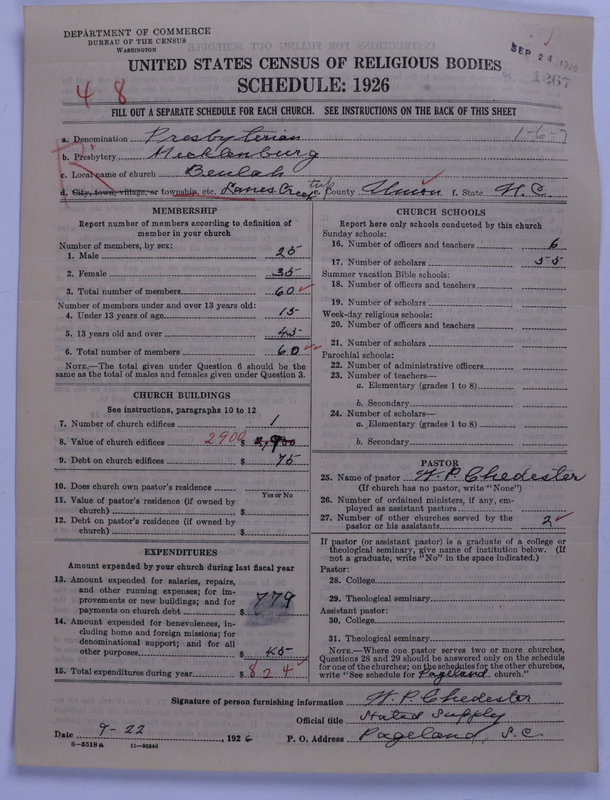 DEPARTMENT OF COMMERCE
BUREAU OF THE CENSUS
WASHINGTON
SEP 24 1926
1267
UNITED STATES CENSUS OF RELIGIOUS BODIES
SCHEDULE: 1926
4 8
FILL OUT A SEPARATE SCHEDULE FOR EACH CHURCH. SEE INSTRUCTIONS ON THE BACK OF THIS SHEET
a. Denomination Presbyterian 1-6-7
b. Presbytery Mecklenburg
c. Local name of church Beulah
d. City, town, village, or township, etc. Lanes Creek twp e. County Union f. State N.C.
MEMBERSHIP
Report number of members according to definition of
member in your church
Number of members, by sex:
1. Male 25
2. Female 35
3. Total number of members 60
Number of members under and over 13 years old:
4. Under 13 years of age 15
5. 13 years old and over 45
6. Total number of members 60
NOTE.—The total given under Question 6 should be
same as the total of males and females given under Question 3.
CHURCH BUILDINGS
See instructions, paragraphs 10 to 12
7. Number of church edifices 1
8. Value of church edifices 2900 $ 2,900
9. Debt on church edifices $ 75
10. Does church own pastor's residence
Yes or No
11. Value of pastor's residence (if owned by
church) $
12. Debt on pastor's residence (if owned by
church) $
EXPENDITURES
Amount expended by your church during last fiscal year
13. Amount expended for salaries, repairs,
and other running expenses; for im-
provements or new buildings; and for
payments on church debt $ 779
14. Amount expended for benevolences, in-
cluding home and foreign missions; for
denominational support; and for all
other purposes $ 45
15. Total expenditures during year $ 824
CHURCH SCHOOLS
Report here only schools conducted by this church
Sunday schools:
16. Number of officers and teachers 6
17. Number of scholars 55
Summer vacation Bible schools:
18. Number of officers and teachers
19. Number of scholars
Week-day religious schools:
20. Number of officers and teachers
21. Number of scholars
Parochial schools:
22. Number of administrative officers
23. Number of teachers—
a. Elementary (grades 1 to 8)
b. Secondary
24. Number of scholars—
a. Elementary (grades 1 to 8)
b. Secondary
PASTOR
25. Name of pastor W. P. Chedester
(If church has no pastor, write "None")
26. Number of ordained ministers, if any, em-
ployed as assistant pastors
27. Number of other churches served by the
pastor or his assistants 2
If pastor (or assistant pastor) is a graduate of a college or
theological seminary, give name of institution below. (If
not a graduate, write "No" in the space indicated.)
Pastor:
28. College
29. Theological seminary
Assistant pastor:
30. College
31. Theological seminary
NOTE.—Where one pastor serves two or more churches,
Questions 28 and 29 should be answered only on the schedule
for one of the churches; on the schedules for the other churches,
write "See schedule for Pageland church."
Signature of person furnishing information W. P. Chedester
Official title Stated Supply
Date 9-22, 1926 P. O. Address Pageland, S.C.
8-5518 a 11-40646